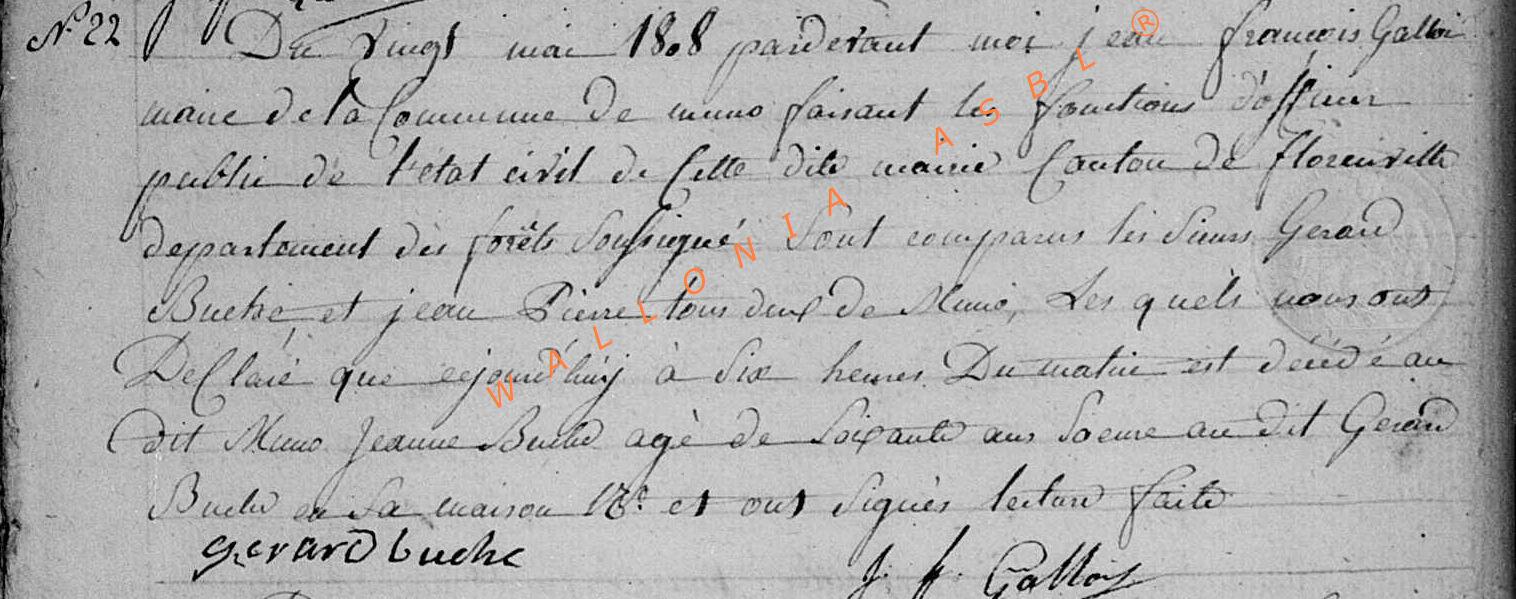 N° 22
Du vingt mai 1808 pardevant moi jean françois Gallois
maire de la Commune de muno faisant les fonctions d'officier
public de l'état civil de Cette dite mairie Canton de florenville
departement des forêts Soussigné Sont comparus les Sieurs Gerard
Buche et jean Pierre tous deux de Muno, Les quels nous ont
DeClaré que cejourd'huy à Six heures Du matin est décédé au
dit Muno Jeanne Buche agé de Soixante ans Soeure au dit Gerard
Buche en Sa maison et ont Signés lecture faite
gerard buche
J. f. Gallois
WALLONIA ASBL ®